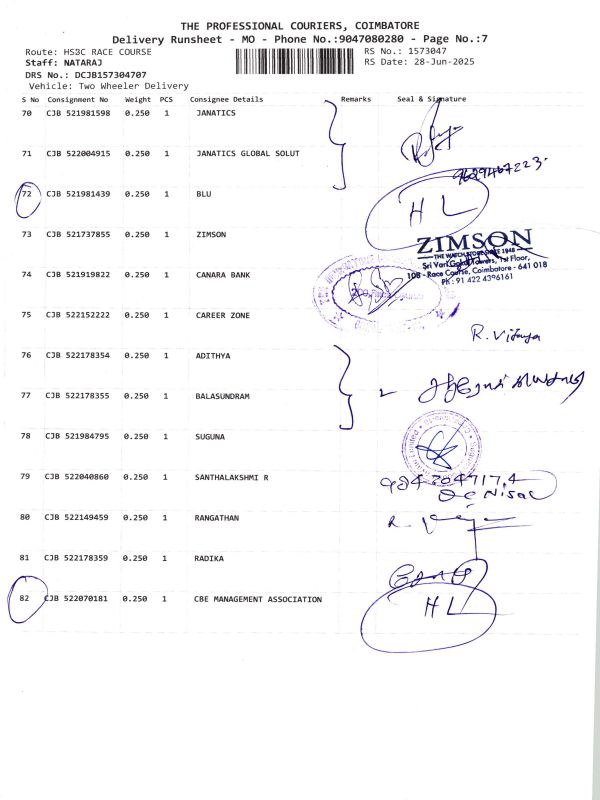 THE PROFESSIONAL COURIERS, COIMBATORE
Delivery Runsheet - MO - Phone No.:9047080280 - Page No.:7
Route: HS3C RACE COURSE
RS No.: 1573047
Staff: NATARAJ
RS Date: 28-Jun-2025
DRS No.: DCJB157304707
Vehicle: Two Wheeler Delivery
S No Consignment No Weight PCS Consignee Details Remarks Seal & Signature
70 CJB 521981598 0.250 1 JANATICS
71 CJB 522004915 0.250 1 JANATICS GLOBAL SOLUT
9629467223.
72 CJB 521981439 0.250 1 BLU
H L
73 CJB 521737855 0.250 1 ZIMSON
ZIMSON
THE WATCH STORE SINCE 1948
Sri Vari Gokul Towers, 1st Floor,
108 - Race Course, Coimbatore - 641 018
Ph : 91 422 4396161
74 CJB 521919822 0.250 1 CANARA BANK
75 CJB 522152222 0.250 1 CAREER ZONE
R. Vijaya
76 CJB 522178354 0.250 1 ADITHYA
77 CJB 522178355 0.250 1 BALASUNDRAM
78 CJB 521984795 0.250 1 SUGUNA
79 CJB 522040860 0.250 1 SANTHALAKSHMI R
80 CJB 522149459 0.250 1 RANGATHAN
81 CJB 522178359 0.250 1 RADIKA
82 CJB 522070181 0.250 1 CBE MANAGEMENT ASSOCIATION
H L